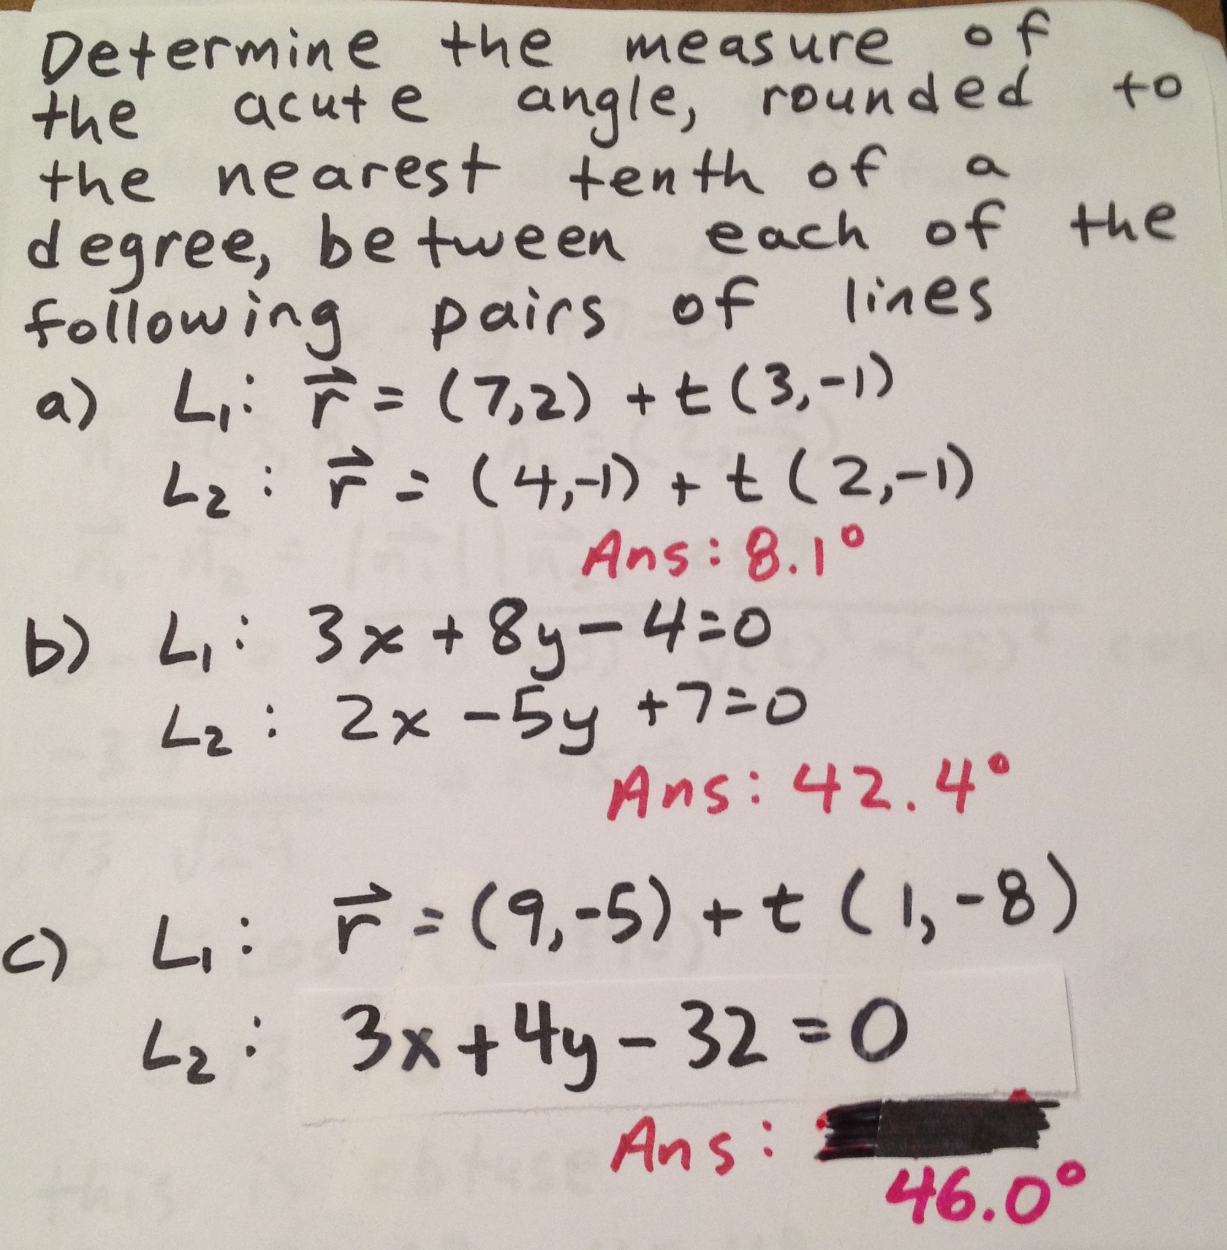 Determine the measure of
the acute angle, rounded to
the nearest tenth of a
degree, between each of the
following pairs of lines
a) L₁: r⃗ = (7,2) + t(3,-1)
L₂: r⃗ = (4,-1) + t(2,-1)
Ans: 8.1°
b) L₁: 3x + 8y - 4 = 0
L₂: 2x - 5y + 7 = 0
Ans: 42.4°
c) L₁: r⃗ = (9,-5) + t(1,-8)
L₂: 3x + 4y - 32 = 0
Ans:
46.0°